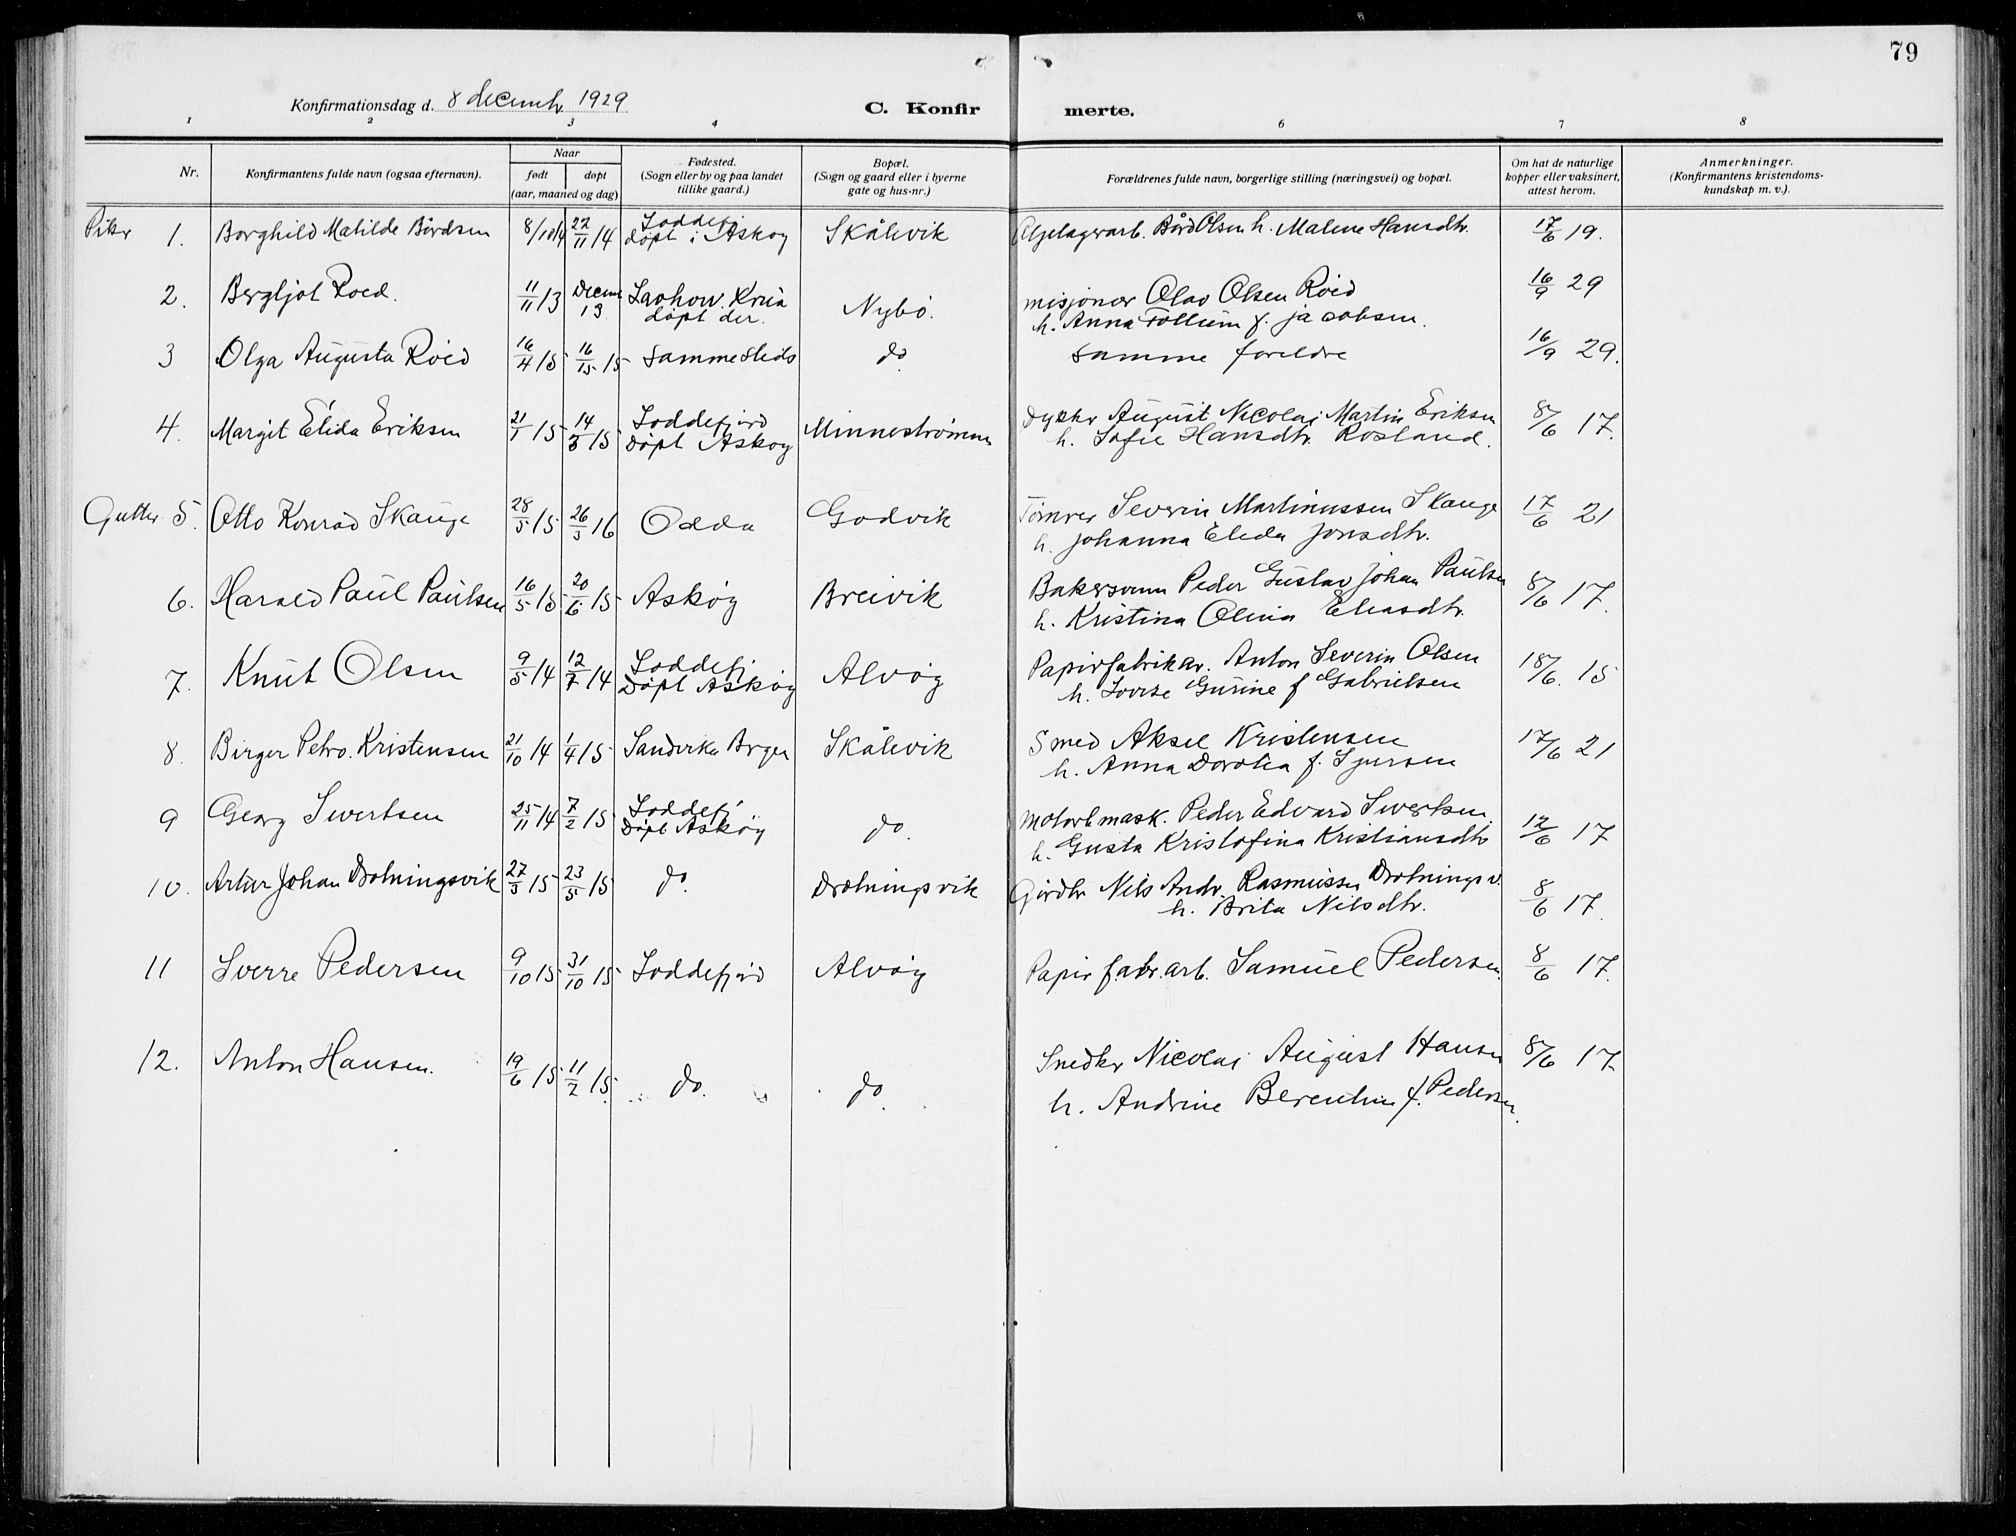 79
Konfirmationsdag d. 8 decembr 1929
C. Konfir merte.
1 2 3 4 6 7 8
Nr. Konfirmantens fulde navn (ogsaa efternavn). Naar født døpt (aar, maaned og dag) Fødested. (Sogn eller by og paa landet tillike gaard.) Bopæl. (Sogn og gaard eller i byerne gate og hus-nr.) Forældrenes fulde navn, borgerlige stilling (næringsvei) og bopæl. Om hat de naturlige kopper eller vaksinert, attest herom. Anmerkninger. (Konfirmantens kristendoms-kundskap m. v.).
Piker 1. Borghild Matilde Bårdsen 8/10 14 22/11 14 Loddefj døpt i Askøy Skålevik Oljelagerarb. Bård Olsen h. Malene Hansdtr. 17/6 19.
2. Bergljot Roed. 11/11 13 Decem 13 Laohow. Kina døpt der. Nybø. misjonær Olav Olsen Röed h. Anna Tollum f. Jacobsen. 16/9 29
3 Olga Augusta Röed 16/4 15 16/15 15 Sammesteds do Samme foreldre 16/9 29.
4. Margit Elida Eriksen 21/1 15 14/3 15 Loddefjord døpt Askøy Minnestrømmen Dykker August Nicolai Martin Eriksen h. Sofie Hansdtr. Rosland. 8/6 17.
Gutter 5. Otto Konrad Skauge 28/5 15 26/3 16 Odda Godvik Tömrer Severin Martinussen Skauge h. Johanna Elida Jonsdtr. 17/6 21
6. Harald Paul Paulsen 16/5 15 20/6 15 Askøy Breivik Bakersvenn Peder Gustav Johan Paulsen h. Kristina Olina Eliasdtr. 8/6 17.
7. Knut Olsen 9/5 14 12/7 14 Loddefj Døpt Askøy Alvøy Papirfabrikar. Anton Severin Olsen h. Lovise Gurine f Gabrielsen 18/6. 15
8. Birger Petro. Kristensen 21/10 14 1/4 15 Sandvike Brgen Skålevik Smed Aksel Kristensen h. Anna Dorotea f. Sjursen 17/6 21
9 Georg Sivertsen 25/11 14 7/2 15 Loddefj Døpt Askøy do. Motorb mask. Peder Edvard Sivertsen. h. Gusta Kristofina Kristiansdtr 12/6 17
10. Artur Johan Drotningsvik 27/3 15 23/5 15 do. Drotningsvik Gårdbr Nils Andr. Rasmussen Drotningsv. h. Brita Nilsdtr. 8/6 17.
11 Sverre Pedersen 9/10 15 31/10 15 Loddefjord Alvøy Papir fabr. arb. Samuel Pedersen. 8/6 17.
12. Anton Hansen. 19/6 15 11/7 15. do. do. Snedker Nicolai August Hansen h. Andrine Berentine f. Pedersen. 8/6 17.